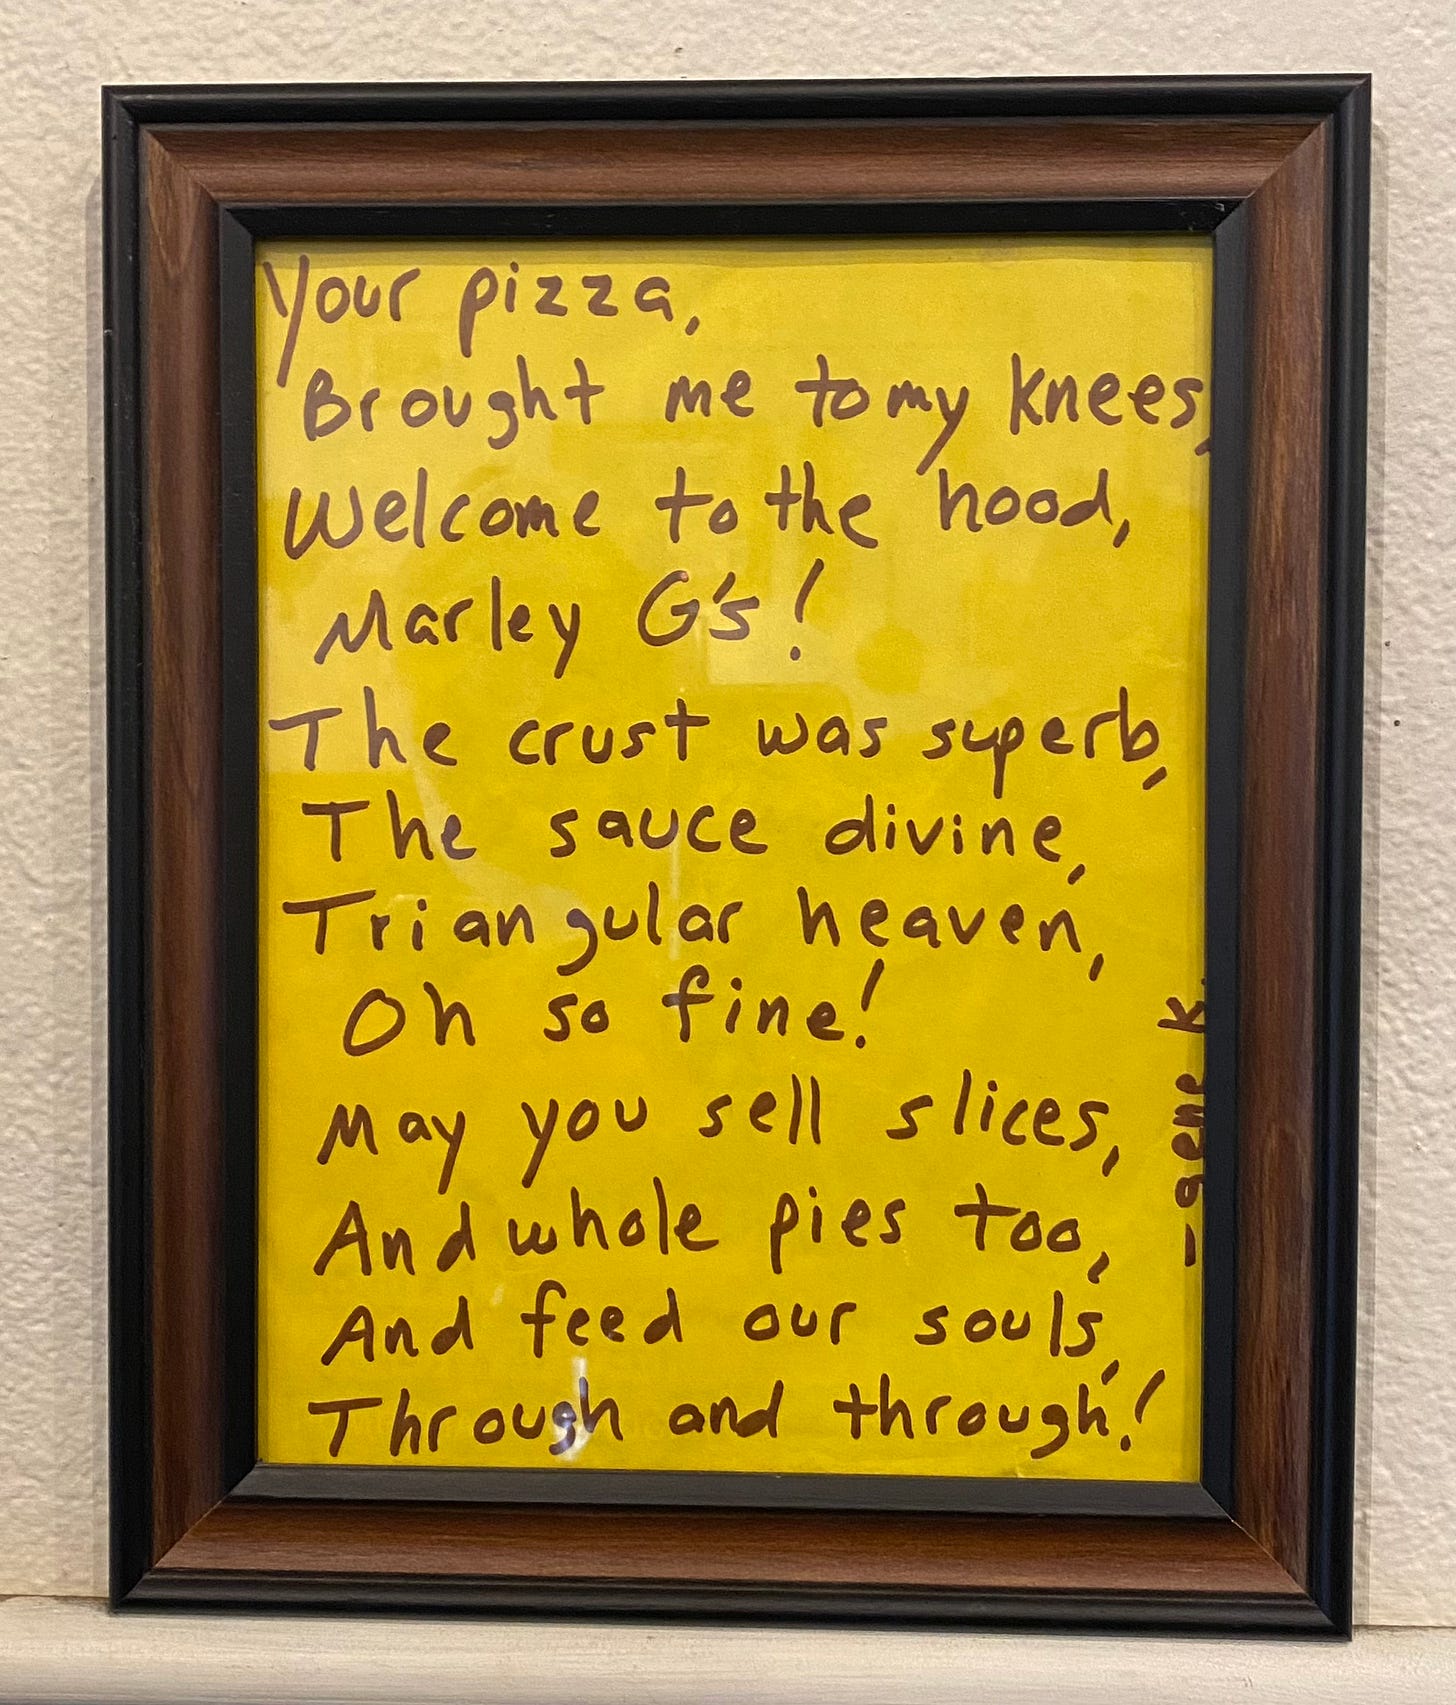 Your pizza,
Brought me to my knees,
Welcome to the hood,
Marley G's!
The crust was superb,
The sauce divine,
Triangular heaven,
Oh so fine!
May you sell slices,
And whole pies too,
And feed our souls,
Through and through!
- gene K.